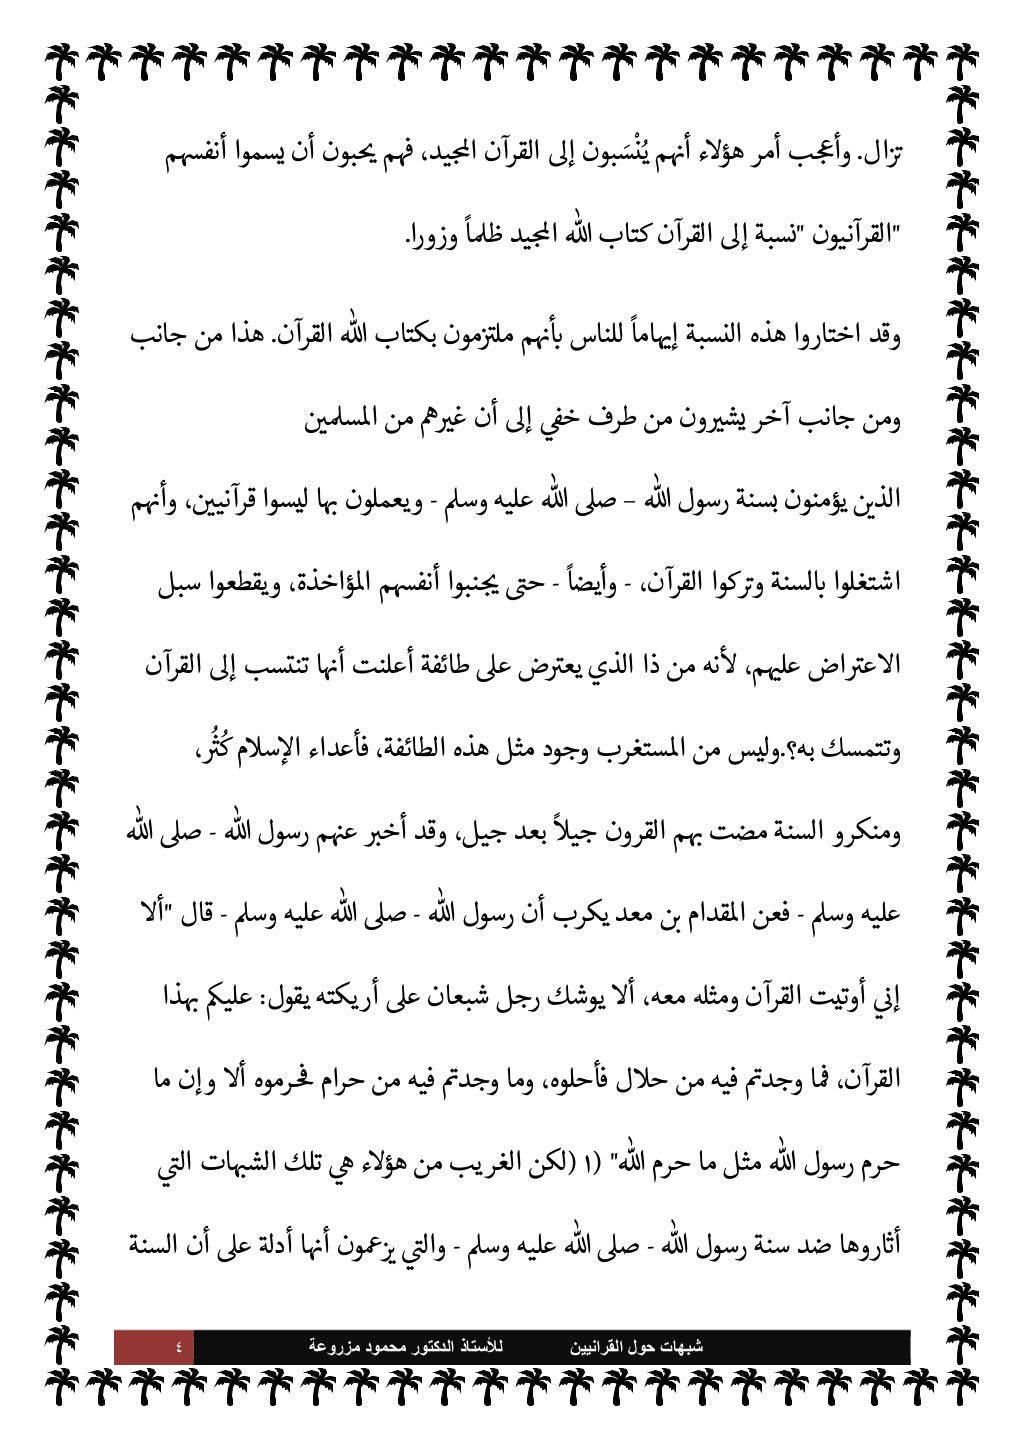 تزال. وأعجب أمر هؤلاء أنهم يُنْسَبون إلى القرآن المجيد، فهم يحبون أن يسموا أنفسهم
"القرآنيون "نسبة إلى القرآن كتاب الله المجيد ظلماً وزورا.
وقد اختاروا هذه النسبة إيهاماً للناس بأنهم ملتزمون بكتاب الله القرآن. هذا من جانب
ومن جانب آخر يشيرون من طرف خفي إلى أن غيرهم من المسلمين
الذين يؤمنون بسنة رسول الله – صلى الله عليه وسلم - ويعملون بها ليسوا قرآنيين، وأنهم
اشتغلوا بالسنة وتركوا القرآن، - وأيضاً - حتى يجنبوا أنفسهم المؤاخذة، ويقطعوا سبل
الاعتراض عليهم، لأنه من ذا الذي يعترض على طائفة أعلنت أنها تنتسب إلى القرآن
وتتمسك به؟.وليس من المستغرب وجود مثل هذه الطائفة، فأعداء الإسلام كُثُر،
ومنكرو السنة مضت بهم القرون جيلاً بعد جيل، وقد أخبر عنهم رسول الله - صلى الله
عليه وسلم - فعن المقدام بن معد يكرب أن رسول الله - صلى الله عليه وسلم - قال "ألا
إني أوتيت القرآن ومثله معه، ألا يوشك رجل شبعان على أريكته يقول: عليكم بهذا
القرآن، فما وجدتم فيه من حلال فأحلوه، وما وجدتم فيه من حرام فحرموه ألا وإن ما
حرم رسول الله مثل ما حرم الله" (١ (لكن الغريب من هؤلاء هي تلك الشبهات التي
أثاروها ضد سنة رسول الله - صلى الله عليه وسلم - والتي يزعمون أنها أدلة على أن السنة
شبهات حول القرانيين للأستاذ الدكتور محمود مزروعة ٤